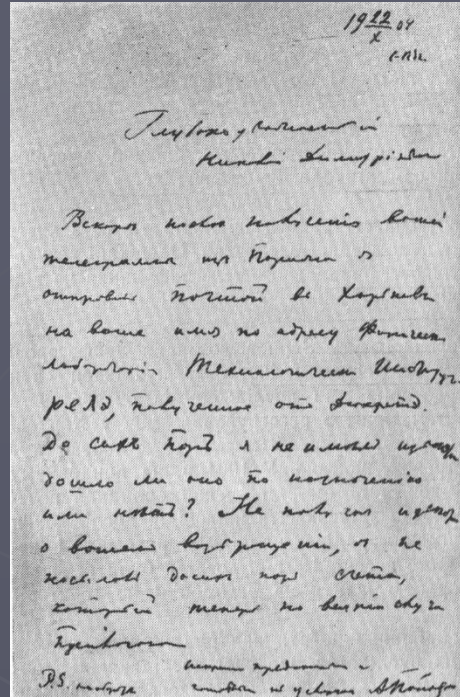 19 22/X 04
Глубокоуважаемый
Николай Дмитріевич
Вскорѣ послѣ полученія вашей
телеграммы изъ Парижа я
отправилъ почтой въ Харьковъ
на ваше имя по адресу Физическ
лабораторіи Технологическ Институт
реле, полученное отъ Дюкрете.
До сихъ поръ я не имѣю
дошло ли оно по назначенію
или нѣтъ? Не получая
о вашемъ возвращеніи, я не
посылалъ до сихъ поръ счета,
который теперь на всякій случай
P.S. готовый къ услугам АПопов